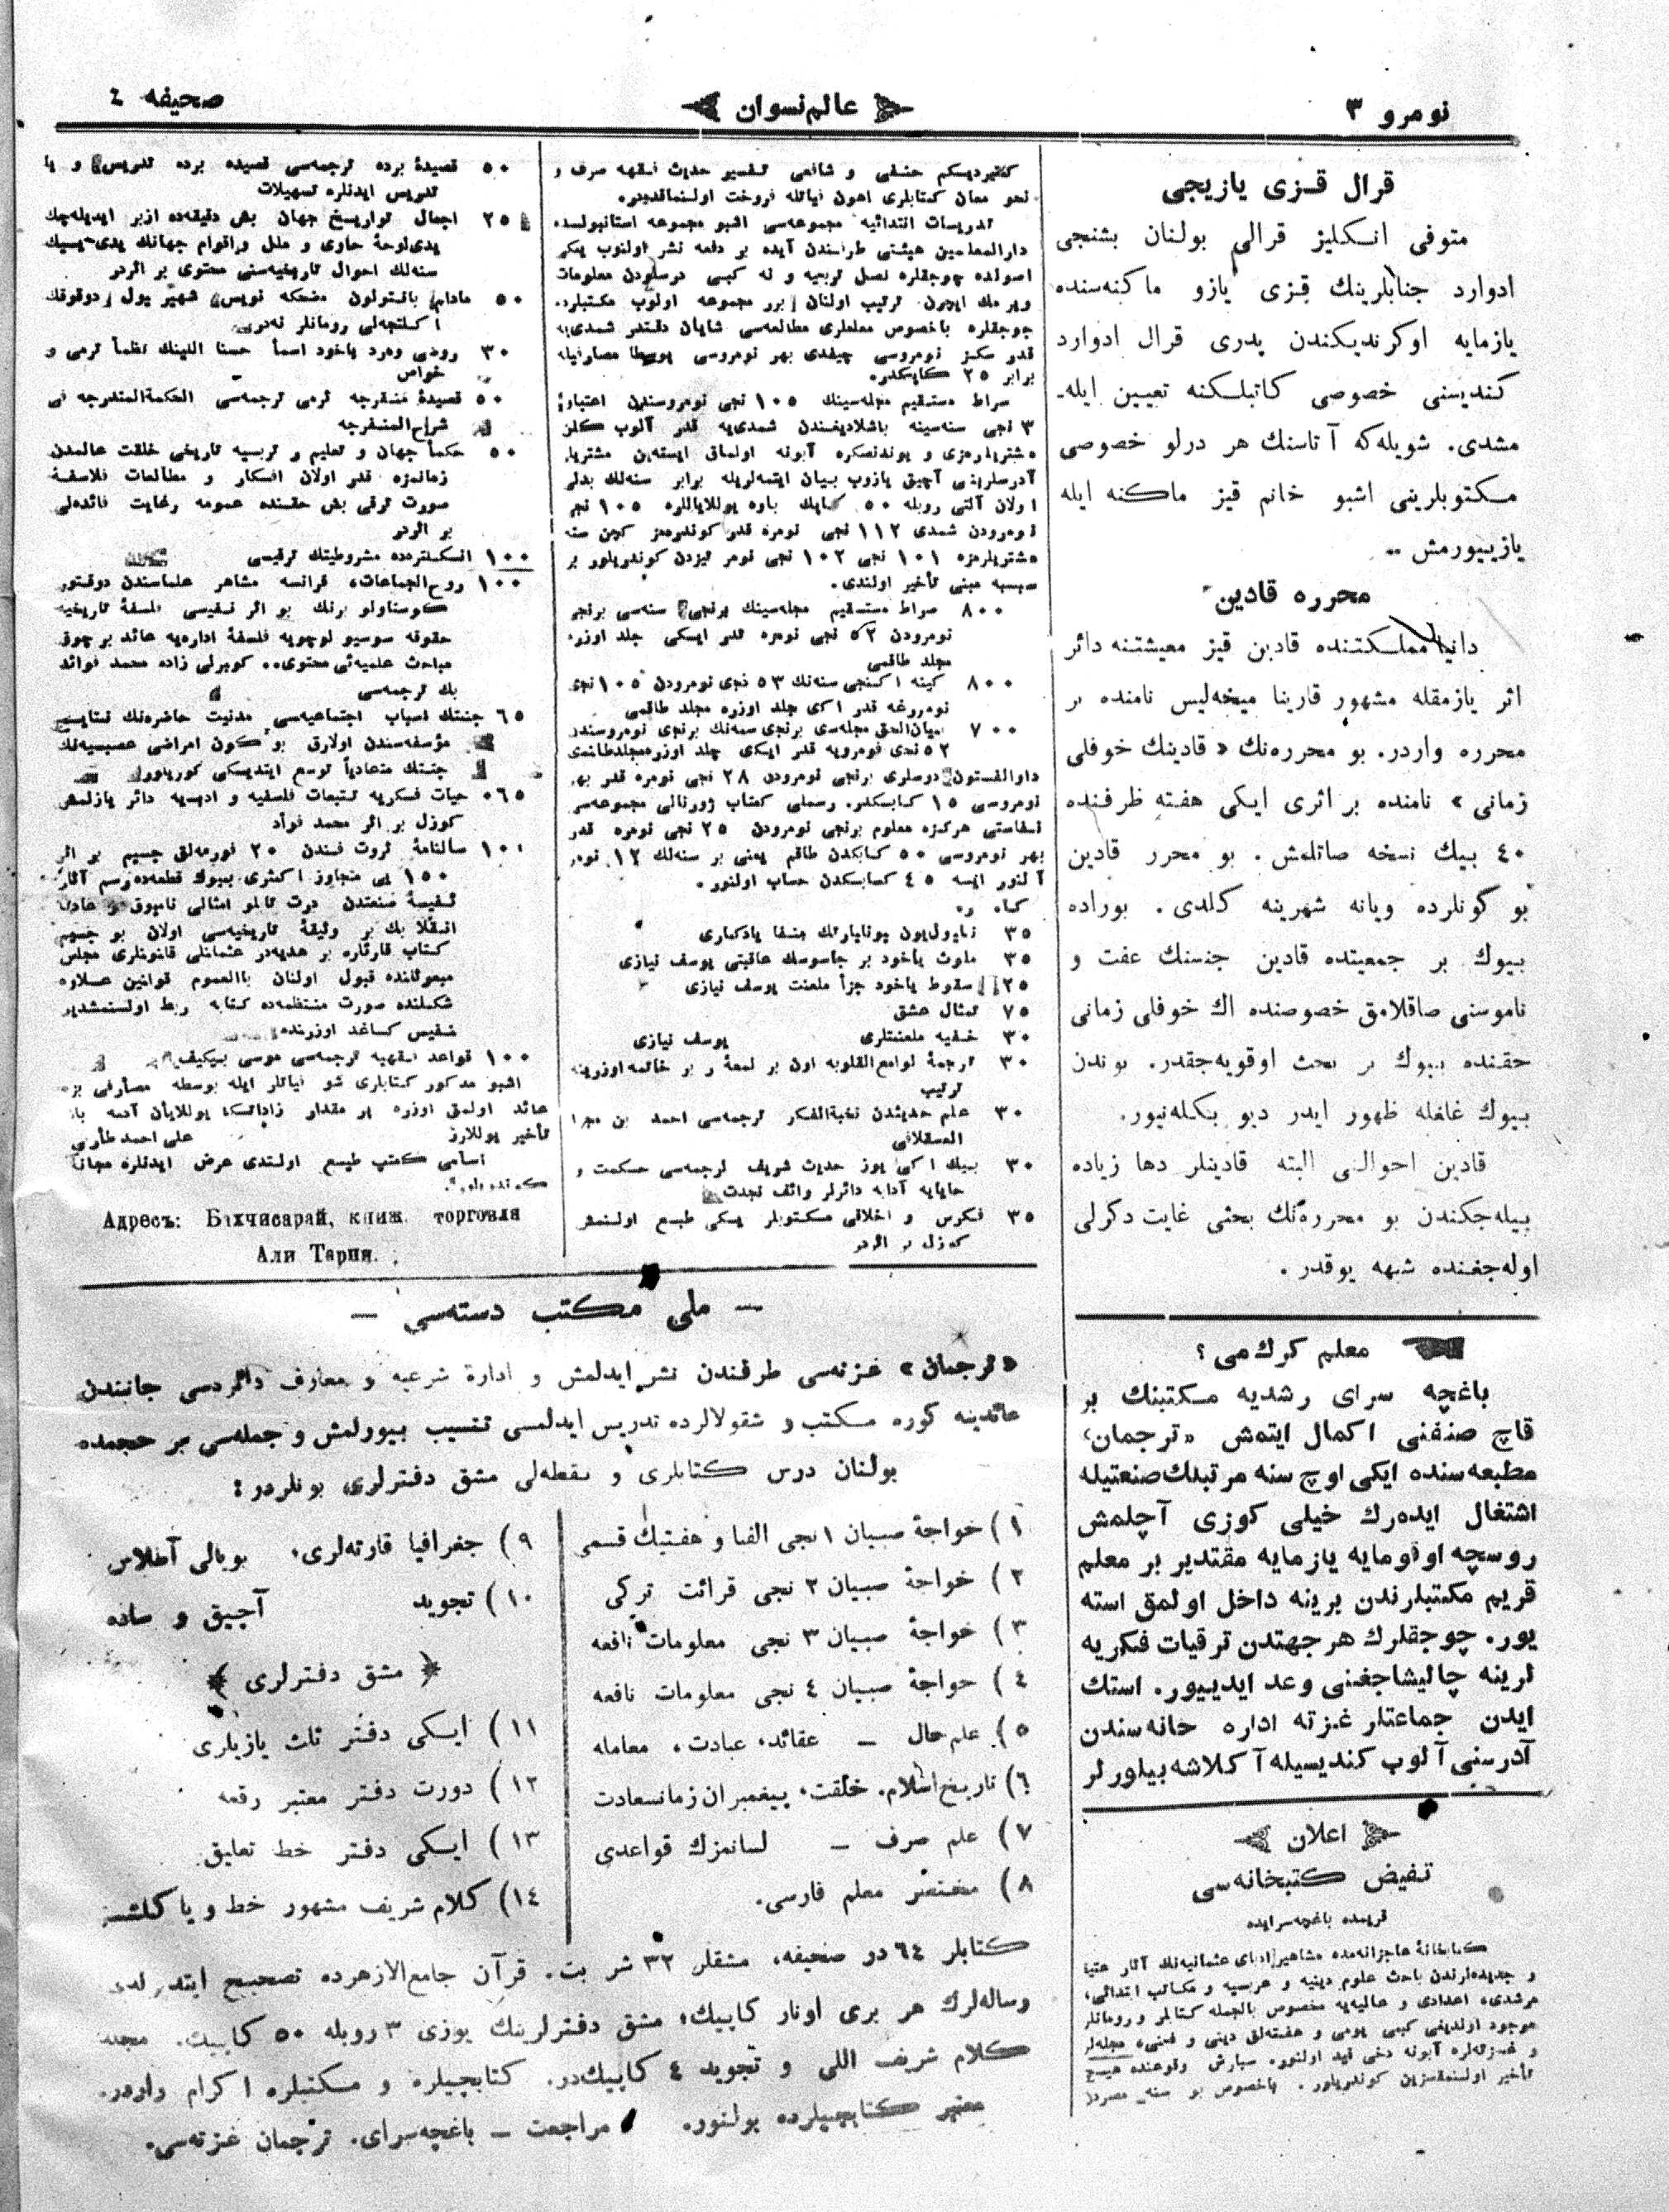 نومرو ٣
عالم نسوان
صحیفه ٤
قرال قزی یازیجی
متوفی انكلیز قرالی بولنان بشنجی
ادوارد جنابلرینك قزی یازو ماكنه‌سنده
یازمایه اوكرندیكندن پدری قرال ادوارد
كندیسنی خصوصی كاتبلكنه تعیین ایله‌
مشدی. شویله‌كه آتاسنك هر درلو خصوصی
مكتوبلرینی اشبو خانم قیز ماكنه ایله
یازییورمش ..
محرره قادین
مملكتنده قادین قیز معیشتنه دائر
اثر یازمقله مشهور قارینا میخه‌لیس نامنده بر
محرره واردر. بو محرره‌نك «قادینك خوفلی
زمانی» نامنده بر اثری ایكی هفته ظرفنده
٤٠ بیك نسخه صاتلمش. بو محرر قادین
بو كونلرده ویانه شهرینه كلدی. بوراده
بیوك بر جمعیتده قادین جنسنك عفت و
ناموسنی صاقلامق خصوصنده اك خوفلی زمانی
حقنده بیوك بر بحث اوقویه‌جقدر. بوندن
بیوك غلغله ظهور ایدر دیو بكله‌نیور.
قادین احوالنی البته قادینلر دها زیاده
بیله‌جكندن بو محرره‌نك بحثی غایت دكرلی
اوله‌جغنده شبهه یوقدر.
معلم كرك‌می؟
باغچه سرای رشدیه مكتبنك بر
قاچ صنفنی اكمال ایتمش «ترجمان»
مطبعه‌سنده ایكی اوچ سنه مرتبلك صنعتیله
اشتغال ایده‌رك خیلی كوزی آچلمش
روسچه اوقومایه یازمایه مقتدیر بر معلم
قریم مكتبلرندن برینه داخل اولمق استه
یور. چوجقلرك هر جهتدن ترقیات فكریه
لرینه چالیشاجغنی وعد ایدییور. استك
ایدن جماعتلر غزته اداره خانه‌سندن
آدرسنی آلوب كندیسیله آكلاشه بیلورلر
اعلان
تفیض كتبخانه‌سی
قریمده باغچه‌سرایده
كتابخانهٔ عاجزانه‌مده مشاهیر ادبای عثمانیه‌نك آثار عتیقه
و جدیده‌لرندن باحث علوم دینیه و عربیه و مكاتب ابتدائی،
رشدی، اعدادی و عالیه‌یه مخصوص بالجمله كتابلر و رومانلر
موجود اولدیغی كبی یومی و هفته‌لق دینی و فنی، مجله‌لر
و غزته‌لره آبونه دخی قید اولنور. سپارش وقوعنده هیچ
تأخیر اولنمقسزین كوندریلور. باخصوص بو سنه مصردن
كتیردیكم حنفی و شافعی تفسیر حدیث فقهه صرف و
نحو معان كتابلری اهون فیاتله فروخت اولنماقده‌در.
تدریسات ابتدائیه مجموعه‌سی اشبو مجموعه استانبولده
دارالمعلمین هیئتی طرفندن آیده بر دفعه نشر اولنوب یكی
اصولده چوجقلره نصل تربیه و نه كبی درسلردن معلومات
ویرمك ایچون ترتیب اولنان برر مجموعه اولوب مكتبلرده
چوجقلره باخصوص معلملری مطالعه‌سی شایان دقتدر شمدی‌یه
قدر سكز نومروسی چیقدی بهر نومروسی پوسطا مصارفیله
برابر ٢٥ كاپیكدر.
صراط مستقیم مجله‌سینك ١٠٥ نجی نومروسندن اعتباراً
٣ نجی سنه‌سینه باشلادیغندن شمدی‌یه قدر آلوب كلن
مشتریلرمزی و بوندنصكره آبونه اولماق ایسته‌ین مشتریلر
آدرسلرینی آچیق یازوب بیان ایتمه‌لریله برابر سنه‌لك بدلی
اولان آلتی روبله ٥٠ كاپك پاره یوللایالرلره ١٠٥ نجی
نومرودن شمدی ١١٢ نجی نومره قدر كوندررمز كچن سنه
مشتریلرمزه ١٠١ نجی ١٠٢ نجی نومر تیزدن كوندریلور بر
سببه مبنی تأخیر اولندی.
٨٠٠ صراط مستقیم مجله‌سینك برنجی سنه‌سی برنجی
نومرودن ٥٢ نجی نومره قدر ایكی جلد اوزره
مجلد طاقمی
٨٠٠ كینه اكنجی سنه‌نك ٥٣ نجی نومرودن ١٠٥ نجی
نومروغه قدر اكی جلد اوزره مجلد طاقمی
٧٠٠ بیان‌الحق مجله‌سی برنجی سنه‌نك برنجی نومروسندن
٥٢ نجی نومرویه قدر ایكی جلد اوزره مجلد طاقمی
دوسلری برنجی نومرودن ٢٨ نجی نومره قدر بهر
نومروسی ١٥ كاپیكدر. رسملی كتاب ژورنالی مجموعه‌سی
نفاستی هركزه معلوم برنجی نومرودن ٢٥ نجی نومره قدر
بهر نومروسی ٥٠ كاپیكدن طاقم یعنی بر سنه‌لك ١٢ نومر
آلنور ایسه ٤٥ كاپیكدن حساب اولنور.
٣٥ ناپولیون بوناپارتك منفا یادكاری
٣٥ ملوث یاخود بر جاسوسك عاقبتی یوسف نیازی
٢٥ سقوط یاخود جزأ ملعنت یوسف نیازی
٧٥ تمثال عشق
٣٠ خفیه ملعنتلری یوسف نیازی
٣٠ ترجمهٔ لوامع‌القلوبه اون بر لمعهٔ و بر خاتمه اوزرینه
ترتیب
٣٠ علم حدیثدن نخبةالفكر ترجمه‌سی احمد بن حجر
العسقلانی
٣٠ بیك اكی یوز حدیث شریف ترجمه‌سی حكمت و
آدابه دائرلر واثف نجدت
٣٥ فكرس و اخلاقی مكتوبلر یكی طبع اولنمش
كوزل بر اثردر
٥٠ قصیدهٔ برده ترجمه‌سی قصیده برده تدریس و یا
تدریس ایدنلره تسهیلات
٢٥ اجمال تواریخ جهان بش دقیقه‌ده ازبر ایدیله‌جك
یدی لوحهٔ حاوی و ملل واقوام جهانك یدی یسیك
سنه‌لك احوال تاریخیه‌سنی محتوی بر اثردر
٥٠ مضحكه نویس شهیر پول دوقوقك
اكلنجه‌لی رومانلر
٣٠ روضی ورد یاخود اسمأ حسنا اللهینك نظمأ ترمی و
خواص
٥٠ قصیدهٔ منفرجه ترمی ترجمه‌سی الحكمةالمندرجه فی
شراح‌المنفرجه
٥٠ حكمأ جهان و تعلیم و تربیه تاریخی خلقت عالمدن
زمانمزه قدر اولان افكار و مطالعات فلاسفهٔ
صورت ترقی بش حقنده عمومه رغایت فائده‌لی
بر اثردر
١٠٠ انكلتره‌ده مشروطیتك ترقیسی
١٠٠ روح‌الجماعات، فرانسه مشاهر علماسندن دوقتور
كوستاولو بونك بو اثر نفیسی فلسفهٔ تاریخیه
حقوقه سوسیولوجییه فلسفهٔ اداره‌یه عائد بر چوق
مباحث علمیه‌ئی محتوی.. كوپرلی زاده محمد فوائد
بك ترجمه‌سی
٦٥ جنتك اسباب اجتماعیه‌سی مدنیت حاضره‌نك نتایج
مؤسفه‌سندن اولارق بو كون امراضی عصبیه‌نك
جنتك متمادیاً توسع ایتدیكی كوریلور
٠٦٥ حیات فكریه تتبعات فلسفیه و ادبییه دائر یازلمش
كوزل بر اثر محمد فوأد
سالنامهٔ ثروت فندن ٢٠ فورمه‌لق جسیم بر اثر
١٥٠ یی متجاوز اكثری بیوك قطعه‌ده رسم آثار
نفیسهٔ صنعتدن درت تابلو امثالی نامسوق
انقلابك بر وثیقهٔ تاریخیه‌سی اولان بو جسیم
كتاب قارئلره بر هدیه‌در عثمانلی قانونلری مجلس
مبعوثانده قبول اولنان باالعموم قوانین علاوه
شكلنده صورت منتظمه‌ده كتابه ربط اولنمشدیر
نفیس كاغد اوزرنده
١٠٠ قواعد فقهیه ترجمه‌سی موسی بیكیف
اشبو مذكور كتابلری شو فیاتلر ایله پوسطه مصارفی بزه
عائد اولمق اوزره بر مقدار زاداتكا یوللایان آدمه بلا
تأخیر یوللارز علی احمد طارپی
اسامی كتب طبع اولندی عرض ایدنلره مجانا
كوندریلور.
Адресъ: Бахчисарай, книж. торговля
Али Тарпи.
— ملی مكتب دسته‌سی —
«ترجمان» غزته‌سی طرفندن نشر ایدلمش و ادارهٔ شرعیه و معارف دائره‌سی جانبندن
عائدینه كوره مكتب و شقولالرده تدریس ایدلمسی تنسیب بیورلمش و جمله‌سی بر حجمده
بولنان درس كتابلری و نقطه‌لی مشق دفترلری بونلردر:
١) خواجهٔ صبیان ١ نجی الفبا و هفتیك قسمی
٢) خواجهٔ صبیان ٢ نجی قرائت تركی
٣) خواجهٔ صبیان ٣ نجی معلومات نافعه
٤) خواجهٔ صبیان ٤ نجی معلومات نافعه
٥) علم حال — عقائد، عبادت، معامله
٦) تاریخ اسلام. خلقت، پیغمبران زمانسعادت
٧) علم صرف — لسانمزك قواعدی
٨) مختصر معلم فارسی.
٩) جغرافیا قارته‌لری، بویالی آطلاس
١٠) تجوید آچیق و ساده
﴿ مشق دفترلری ﴾
١١) ایكی دفتر ثلث یازیلری
١٢) دورت دفتر معتبر رقعه
١٣) ایكی دفتر خط تعلیق
١٤) كلام شریف مشهور خط و پاكلشسز
كتابلر ٦٤ در صحیفه، مشقلر ٣٢ شر بت. قرآن جامع‌الازهرده تصحیح ایتدرلدی
رساله‌لرك هر بری اونار كاپیك؛ مشق دفترلرینك یوزی ٣ روبله ٥٠ كاپیك. مجلد
كلام شریف اللی و تجوید ٤ كاپیك‌در. كتابچیلره و مكتبلره اكرام واردر.
معتبر كتابچیلرده بولنور. مراجعت — باغچه‌سرای. ترجمان غزته‌سی.